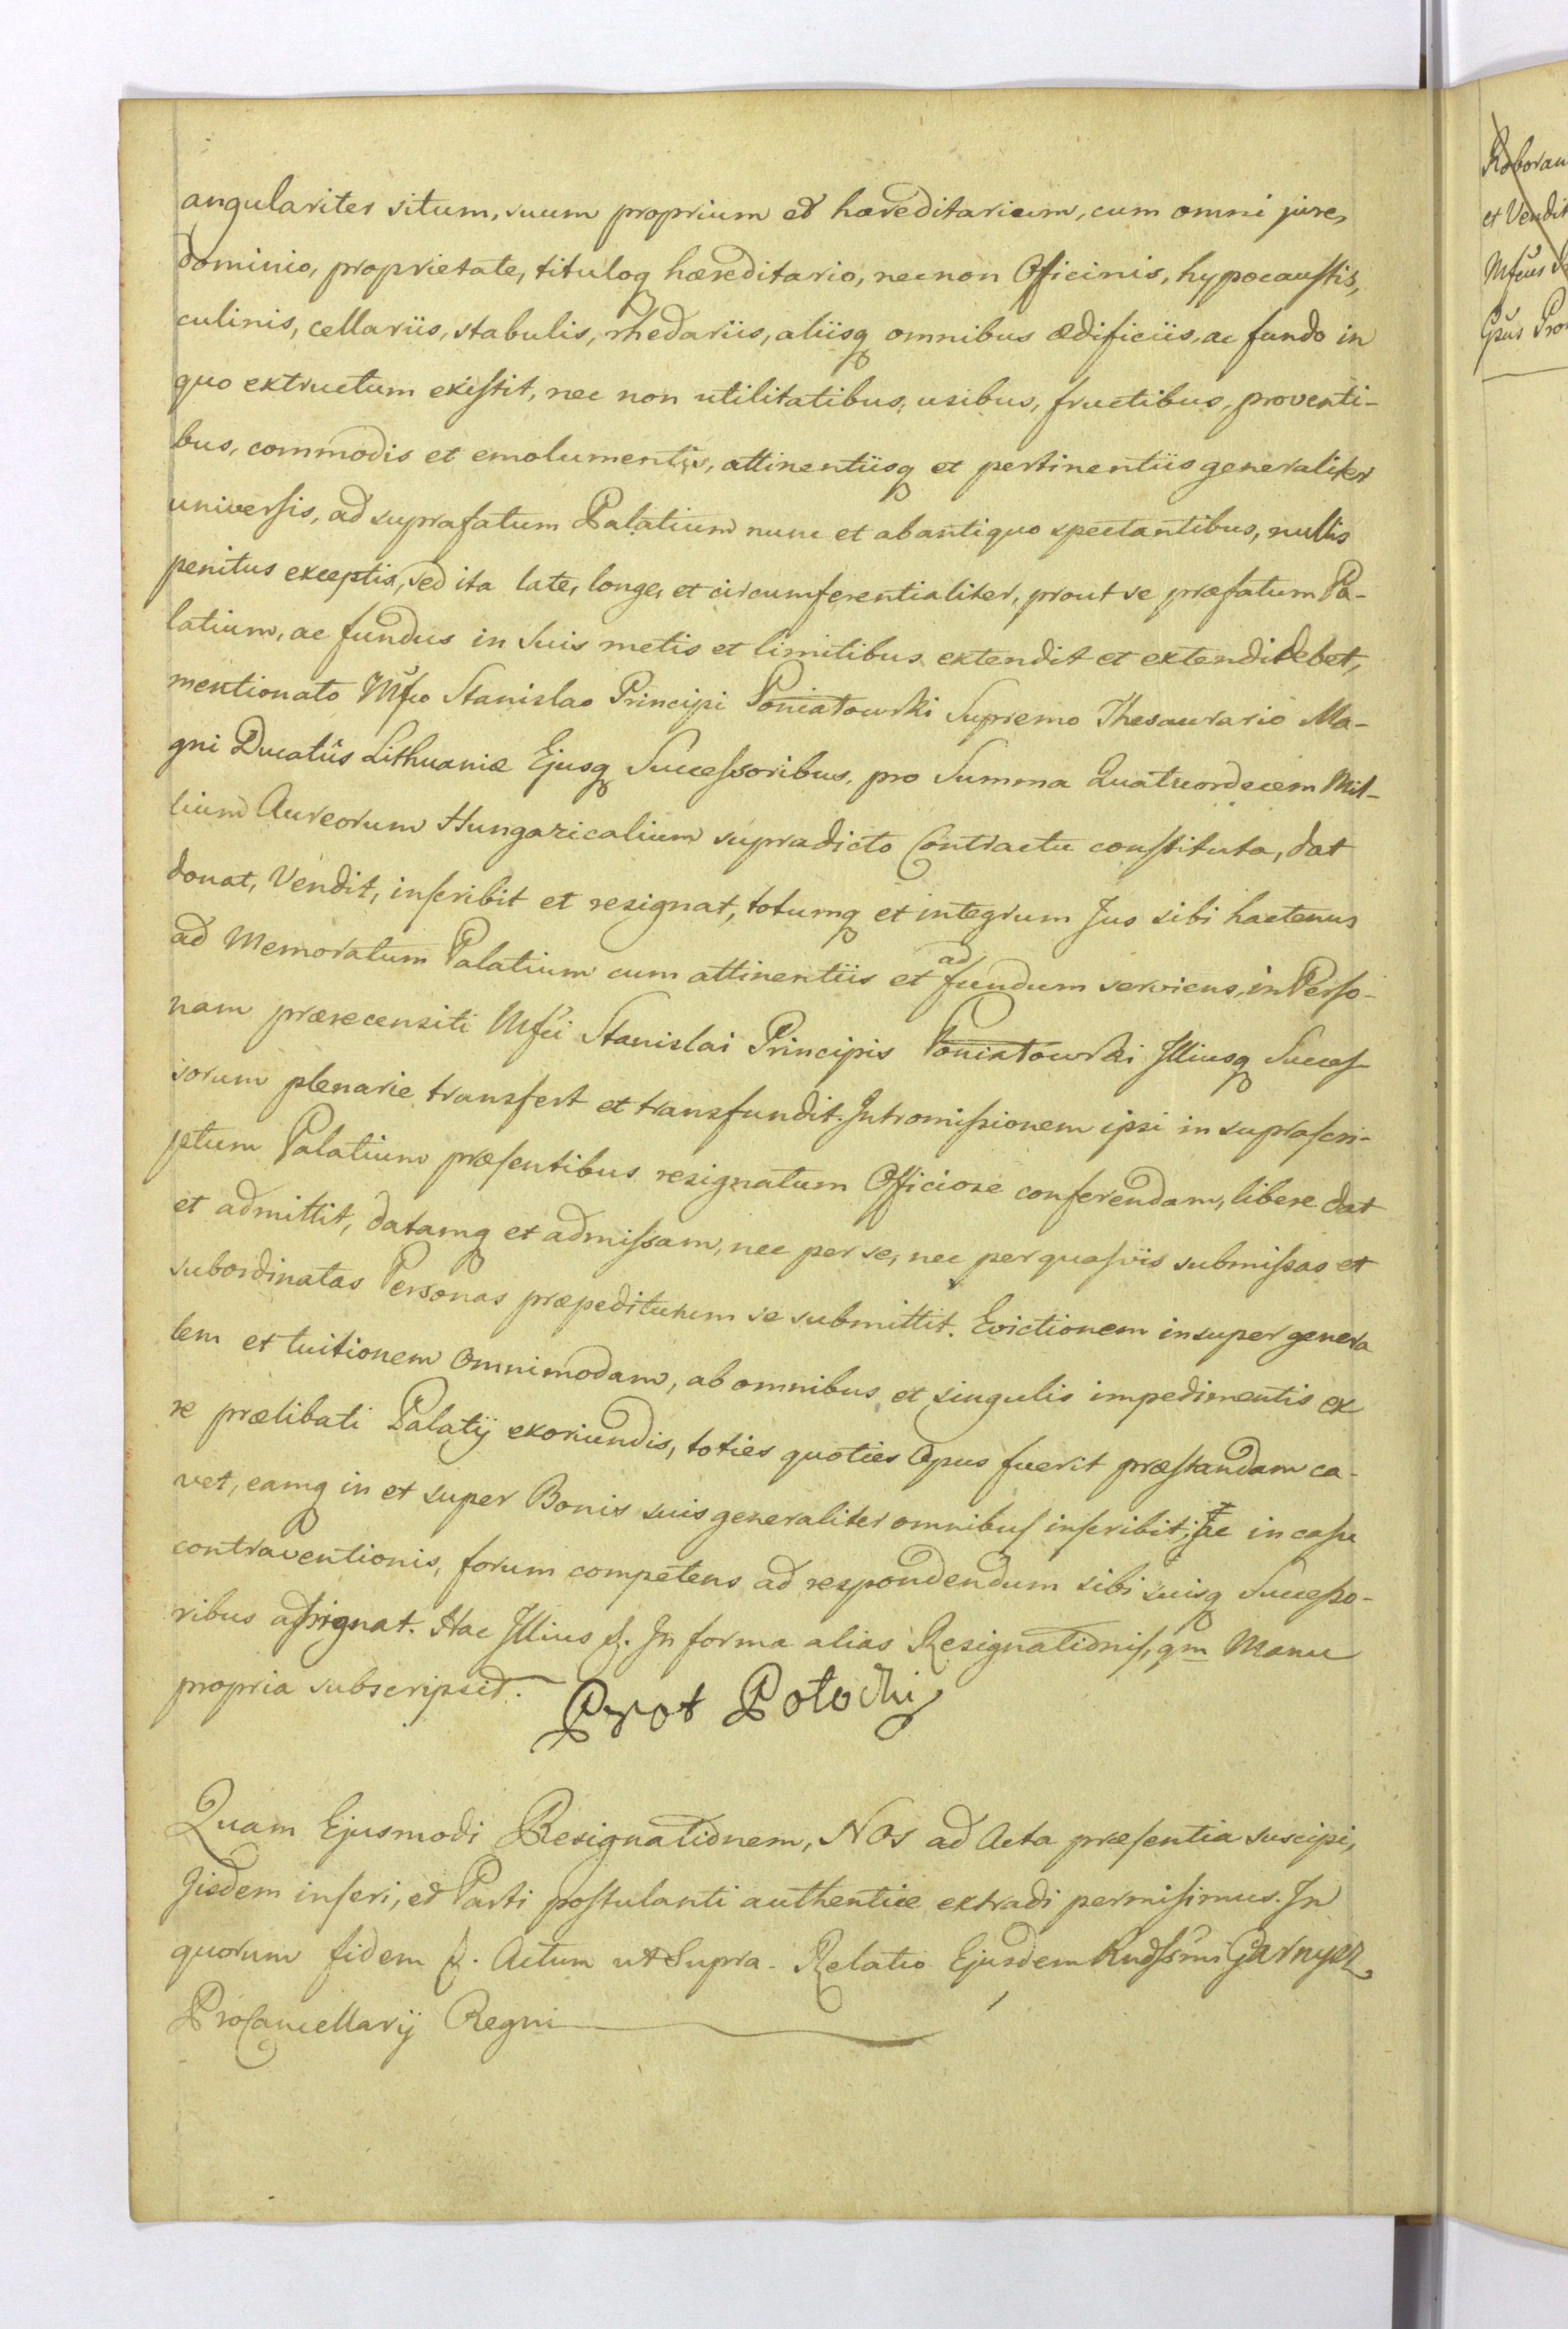 angulariter situm, suum proprium et hæreditarium, cum omni jure,
dominio, proprietate, tituloq hæreditario, necnon Officinis, hypocaustis,
culinis, cellariis, stabulis, rhedariis, aliisq omnibus ædificiis, ac fundo in
quo extructum existit, nec non utilitatibus, usibus, fructibus, proventi-
bus, commodis et emolumentis, attinentiisq et pertinentiis generaliter
universis, ad suprafatum Palatium nunc et abantiquo spectantibus, nullis
penitus exceptis, sed ita late, longe, et circumferentialiter, prout se præfatum Pa-
latium, ac fundus in suis metis et limitibus extendit et extendi debet,
mentionato Mfco Stanislao Principi Poniatowski Supremo Thesaurario Ma-
gni Ducatûs Lithuaniæ Ejusq Successoribus, pro Summa Quatuordecem Mil-
lium Aureorum Hungaricalium supradicto Contractu constituta, dat
donat, Vendit, inscribit et resignat, totumq et integrum Jus sibi hactenus
ad Memoratum Palatium cum attinentiis et ad fundum serviens, in Perso-
nam præreccensiti Mfci Stanislai Principis Poniatowski Illiusq Succes-
sorum plenarie transfert et transfundit. Intromissionem ipsi in suprascri-
ptum Palatium præsentibus resignatum Officiose conferendam, libere dat
et admittit, datamq et admissam, nec per se, nec per quasvis submissas et
subordinatas Personas præpediturum se submittit. Evictionem insuper genera
lem et tuitionem Omnimodam, ab omnibus et singulis impedimentis ex
re prælibati Palatij exoriundis, toties quoties Opus fuerit præstandam ca-
vet, eamq in et super Bonis suis generaliter omnibus inscribit; ac in casu
contraventionis, forum competens ad respondendum sibi suisq Successo-
ribus assignat. Hac Illius &. In forma alias Resignationis, qm Manu
propria subscripsit. Pyot Potocki
Quam Ejusmodi Resignationem, NOS ad Acta præsentia suscipi,
Iisdem inseri, et Parti postulanti authentice extradi permisimus. In
quorum fidem &. Actum ut Supra. Relatio Ejusdem Rndssmi Garnysz
ProCancellarij Regni
et Vendit
Mfcus